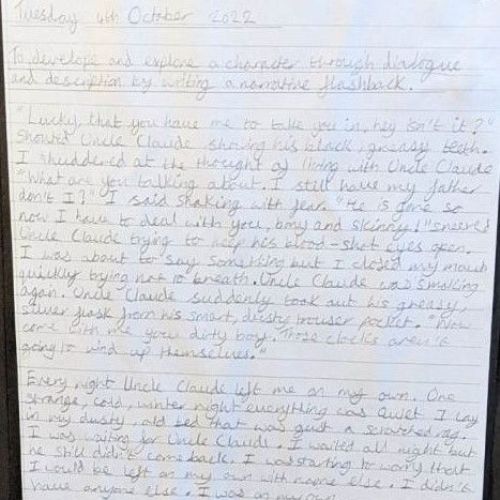 Tuesday 4th October 2022
To develope and explore a character through dialogue
and description by writing a narrative flashback.
"Lucky that you have me to take you in, hey isn't it?"
Shouted Uncle Claude showing his black, greasy teeth.
I shuddered at the thought of living with Uncle Claude
"What are you talking about. I still have my father
don't I?" I said shaking with fear. "He is gone so
now I have to deal with you, bony and skinny!" sneered
Uncle Claude trying to keep his blood-shot eyes open.
I was about to say something but I closed my mouth
quickly trying not to breath. Uncle Claude was smoking
again. Uncle Claude suddenly took out his greasy,
silver flask from his smart, dusty trouser pocket. "Now
come with me you dirty boy. Those clocks aren't
going to wind up themselves."
Every night Uncle Claude left me on my own. One
strange, cold, winter night everything was quiet I lay
in my dusty, old bed that was just a scratched rag.
I was waiting for Uncle Claude. I waited all night but
he still didn't come back. I was starting to worry that
I would be left on my own with noone else. I didn't
have anyone else. I was on my own